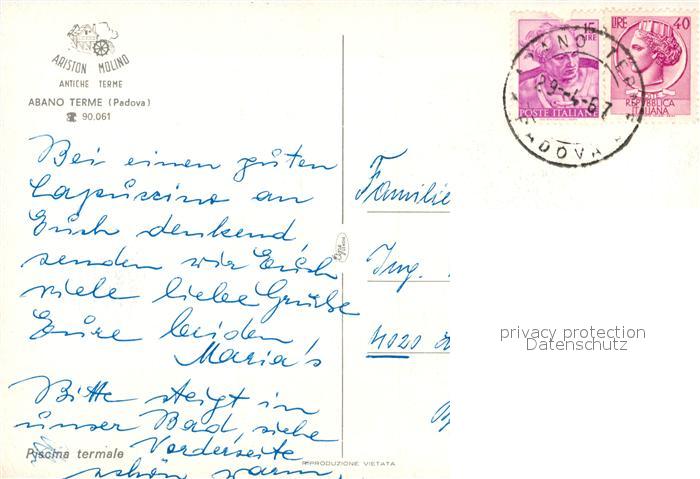 ARISTON MOLINO
ANTICHE TERME
ABANO TERME (Padova)
☎ 90.061
Bei einen guten
Capuccino an
Euch denkend,
senden wir Euch
viele liebe Grüße
Eure beiden
Maria's
Bitte steigt in
unser Bad, siehe
Vorderseite
schön warm,
Piscina termale
RIPRODUZIONE VIETATA
15
LIRE
POSTE ITALIANE
LIRE 40
POSTE
REPUBBLICA
ITALIANA
ABANO TERME
29-4-67
PADOVA
Familie
Ing.
4020
privacy protection
Datenschutz